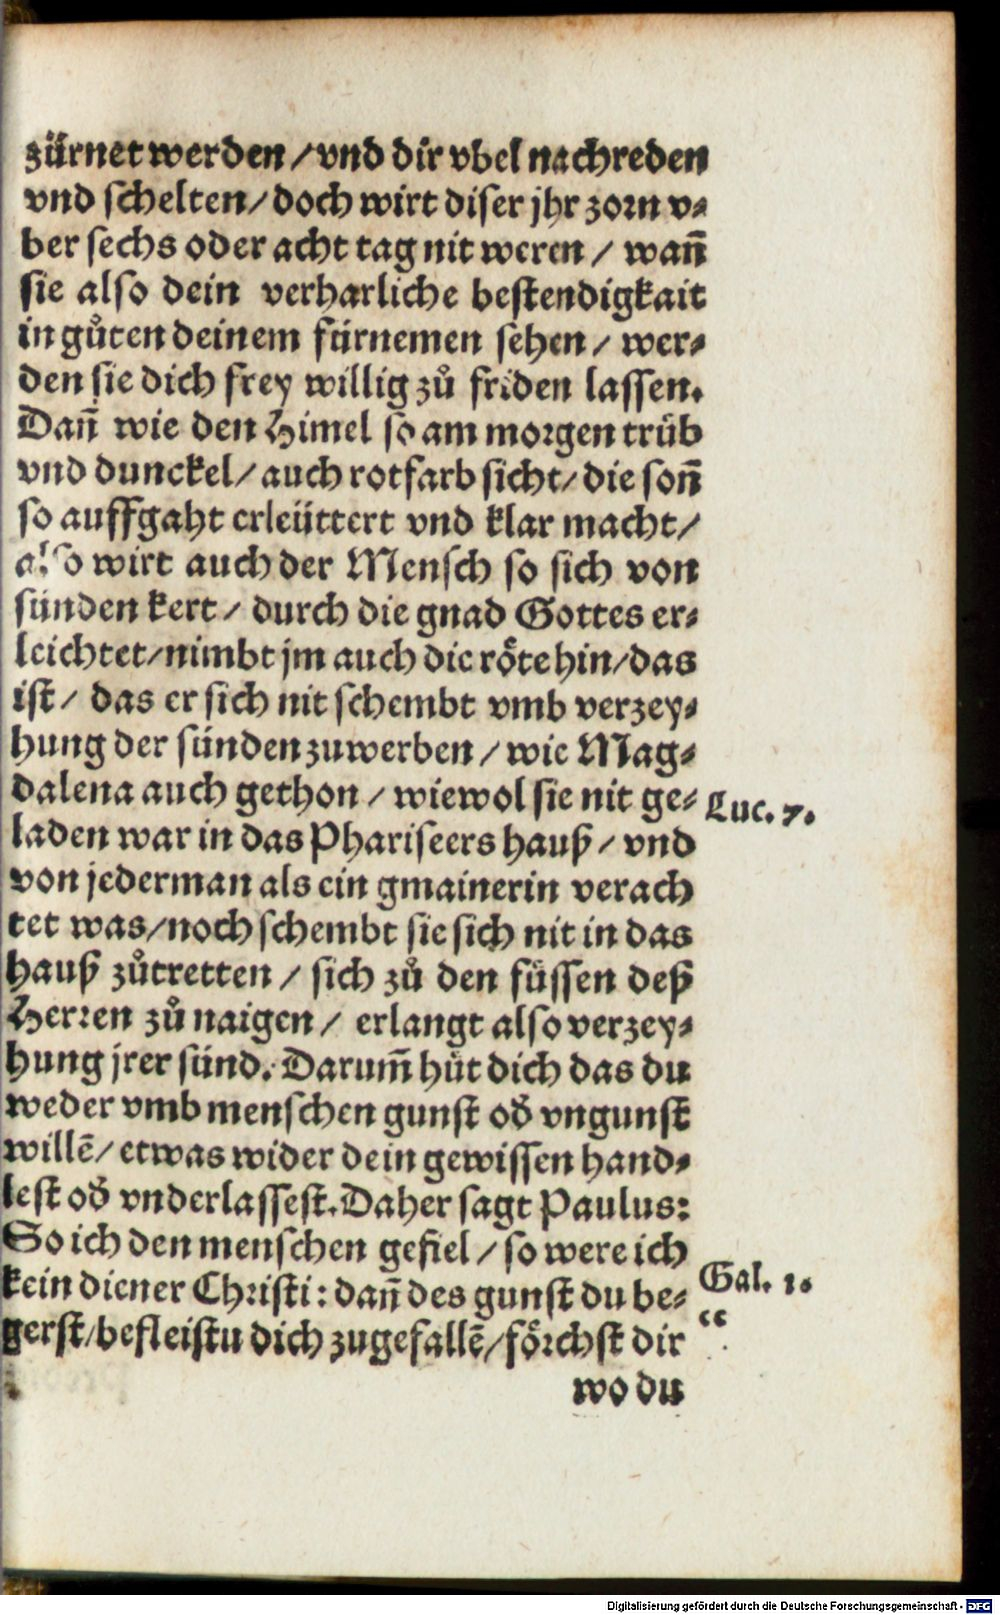 zürnet werden / vnd dir vbel nachreden
vnd schelten / doch wirt diser jhr zorn v⸗
ber sechs oder acht tag nit weren / wañ
sie also dein verharliche bestendigkait
in gůten deinem fürnemen sehen / wer⸗
den sie dich frey willig zů friden lassen.
Dañ wie den Himel so am morgen trüb
vnd dunckel / auch rotfarb sicht / die soñ
so auffgaht erleüttert vnd klar macht /
also wirt auch der Mensch so sich von
sünden kert / durch die gnad Gottes er⸗
leichtet / nimbt jm auch die röte hin / das
ist / das er sich nit schembt vmb verzey⸗
hung der sünden zuwerben / wie Mag⸗
dalena auch gethon / wiewol sie nit ge⸗
Luc. 7.
laden war in das Phariseers hauß / vnd
von jederman als ein gmainerin verach
tet was / noch schembt sie sich nit in das
hauß zůtretten / sich zů den füssen deß
Herren zů naigen / erlangt also verzey⸗
hung jrer sünd. Darum̃ hüt dich das du
weder vmb menschen gunst oď vngunst
willẽ / etwas wider dein gewissen hand⸗
lest oď vnderlassest. Daher sagt Paulus:
So ich den menschen gefiel / so were ich
kein diener Christi: dañ des gunst du be⸗
Gal. 1.
gerst / befleistu dich zugefallẽ / förchst dir
“
wo du
Digitalisierung gefördert durch die Deutsche Forschungsgemeinschaft - DFG